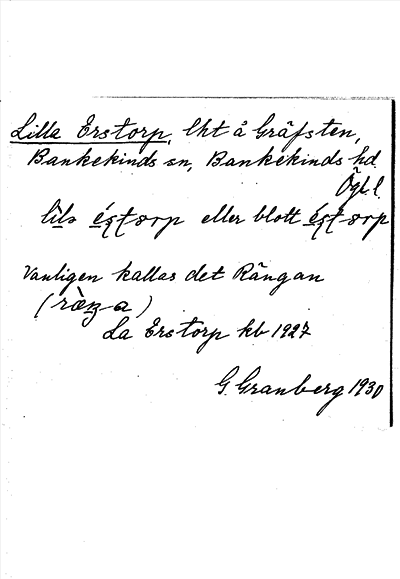 Lilla Erstorp, lht å Gräfsten,
Bankekinds sn, Bankekinds hd.
Ögl. l.
eller blott
Vanligen kallas det Rängan
La Erstorp kb 1927
G. Granberg 1930